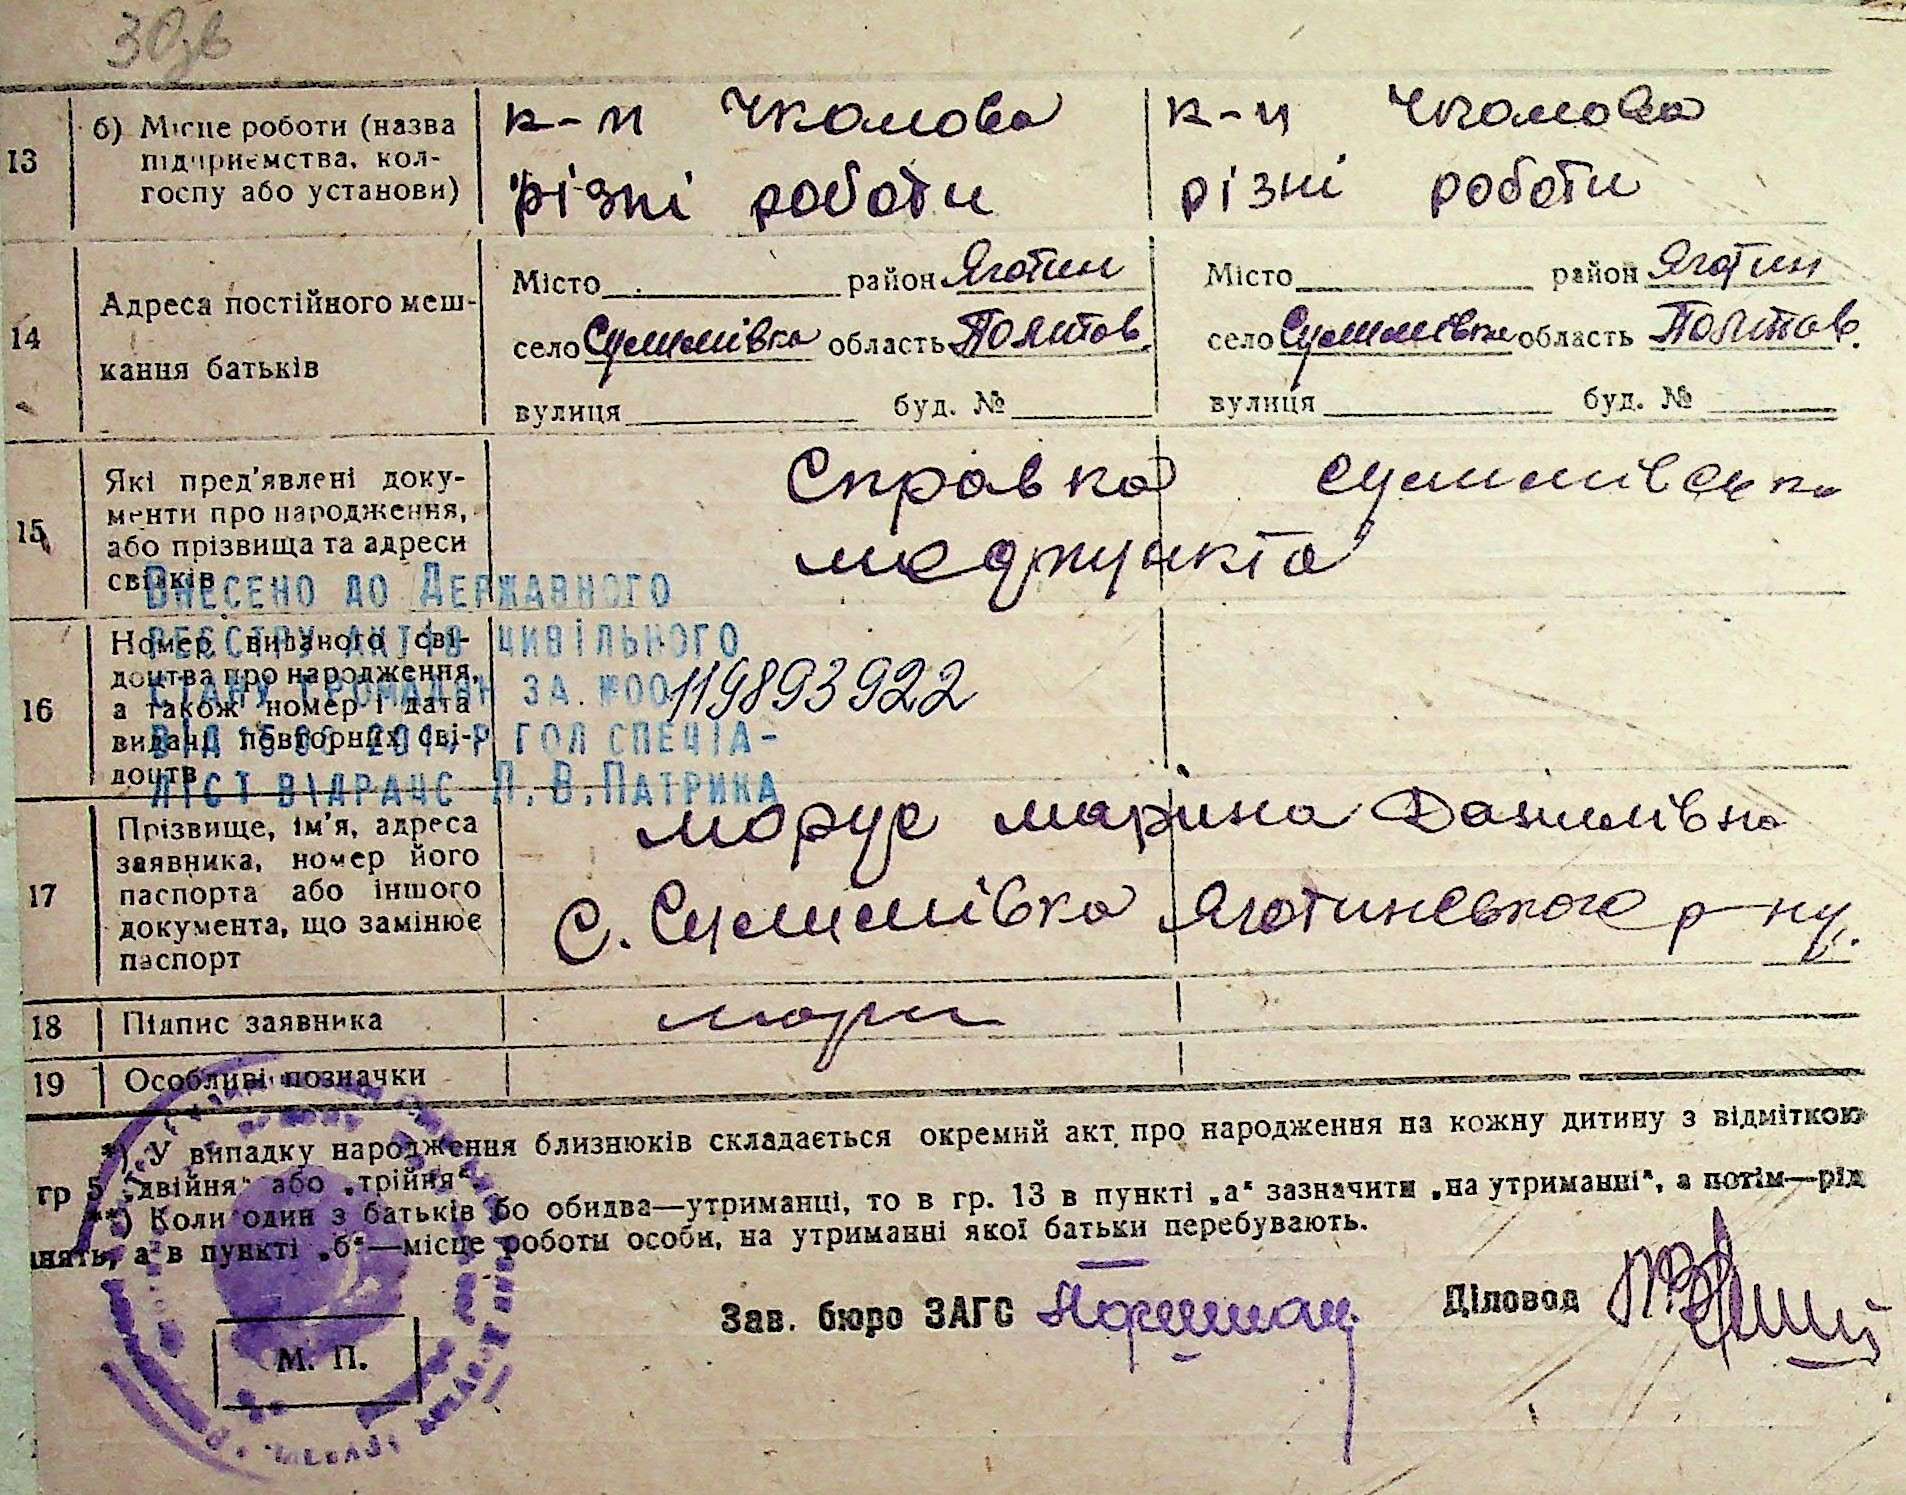 30зв
13 б) Місце роботи (назва підприємства, колгоспу або установи) к-п Чкалова к-п Чкалова
різні роботи різні роботи
14 Адреса постійного меш-
кання батьків
Місто район Яготин Місто район Яготин
село Сулимівка область Полтав. село Сулимівка область Полтав.
вулиця буд. № вулиця буд. №
15 Які пред'явлені доку-
менти про народження,
або прізвища та адреси
свідків
Справка сулимівська
медпункта
Внесено до Державного
реєстру актів цивільного
стану громадян за №00119893922
від 2014р гол спеціа-
ліст відрацс П.В.Патрика
16 Номер виданого сві-
доцтва про народження,
а також номер і дата
видачі повторних сві-
доцтв
17 Прізвище, ім'я, адреса
заявника, номер його
паспорта або іншого
документа, що замінює
паспорт
Морус Марина Данилівна
с. Сулимівка Яготинського р-ну.
18 Підпис заявника
19 Особливі позначки
*) У випадку народження близнюків складається окремий акт про народження на кожну дитину з відміткою
гр 5 „двійня" або „трійня"
**) Коли один з батьків бо обидва—утриманці, то в гр. 13 в пункті „а" зазначити „на утриманні", а потім—рід
нять, а в пункті „б"—місце роботи особи, на утриманні якої батьки перебувають.
Зав. бюро ЗАГС Діловод
М. П.